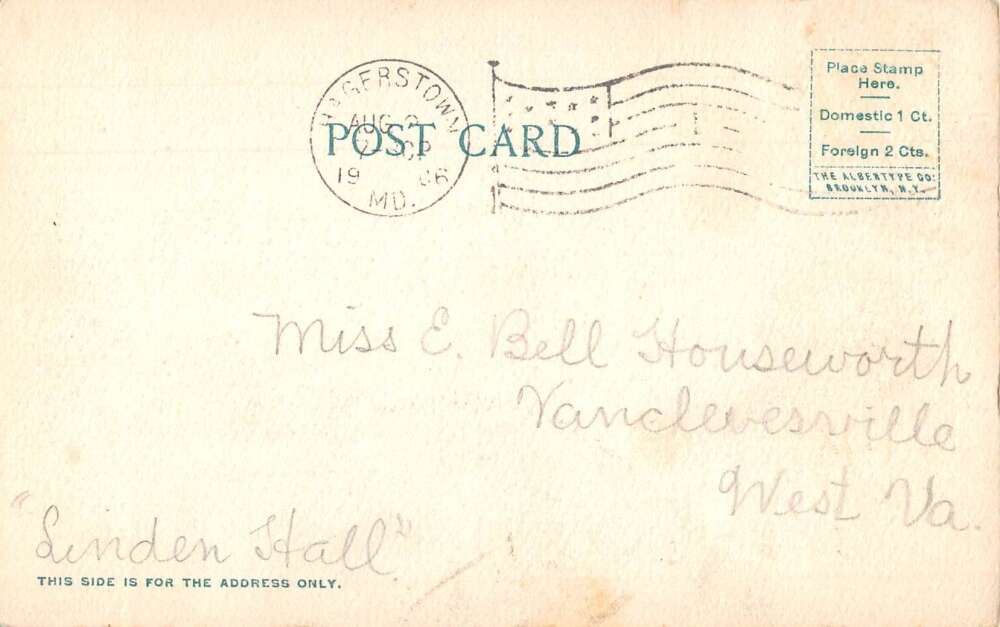 HAGERSTOWN
AUG
19 06
MD.
POST CARD
Place Stamp
Here.
Domestic 1 Ct.
Foreign 2 Cts.
THE ALBERTYPE CO.
BROOKLYN, N.Y.
Miss E. Bell Houseworth
Vanclevesville
West Va.
"Linden Hall"
THIS SIDE IS FOR THE ADDRESS ONLY.